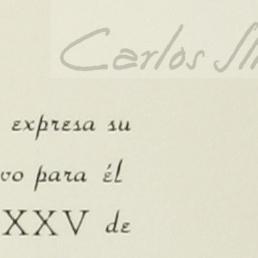 Carlos
expresa su
vo para él
XXV de